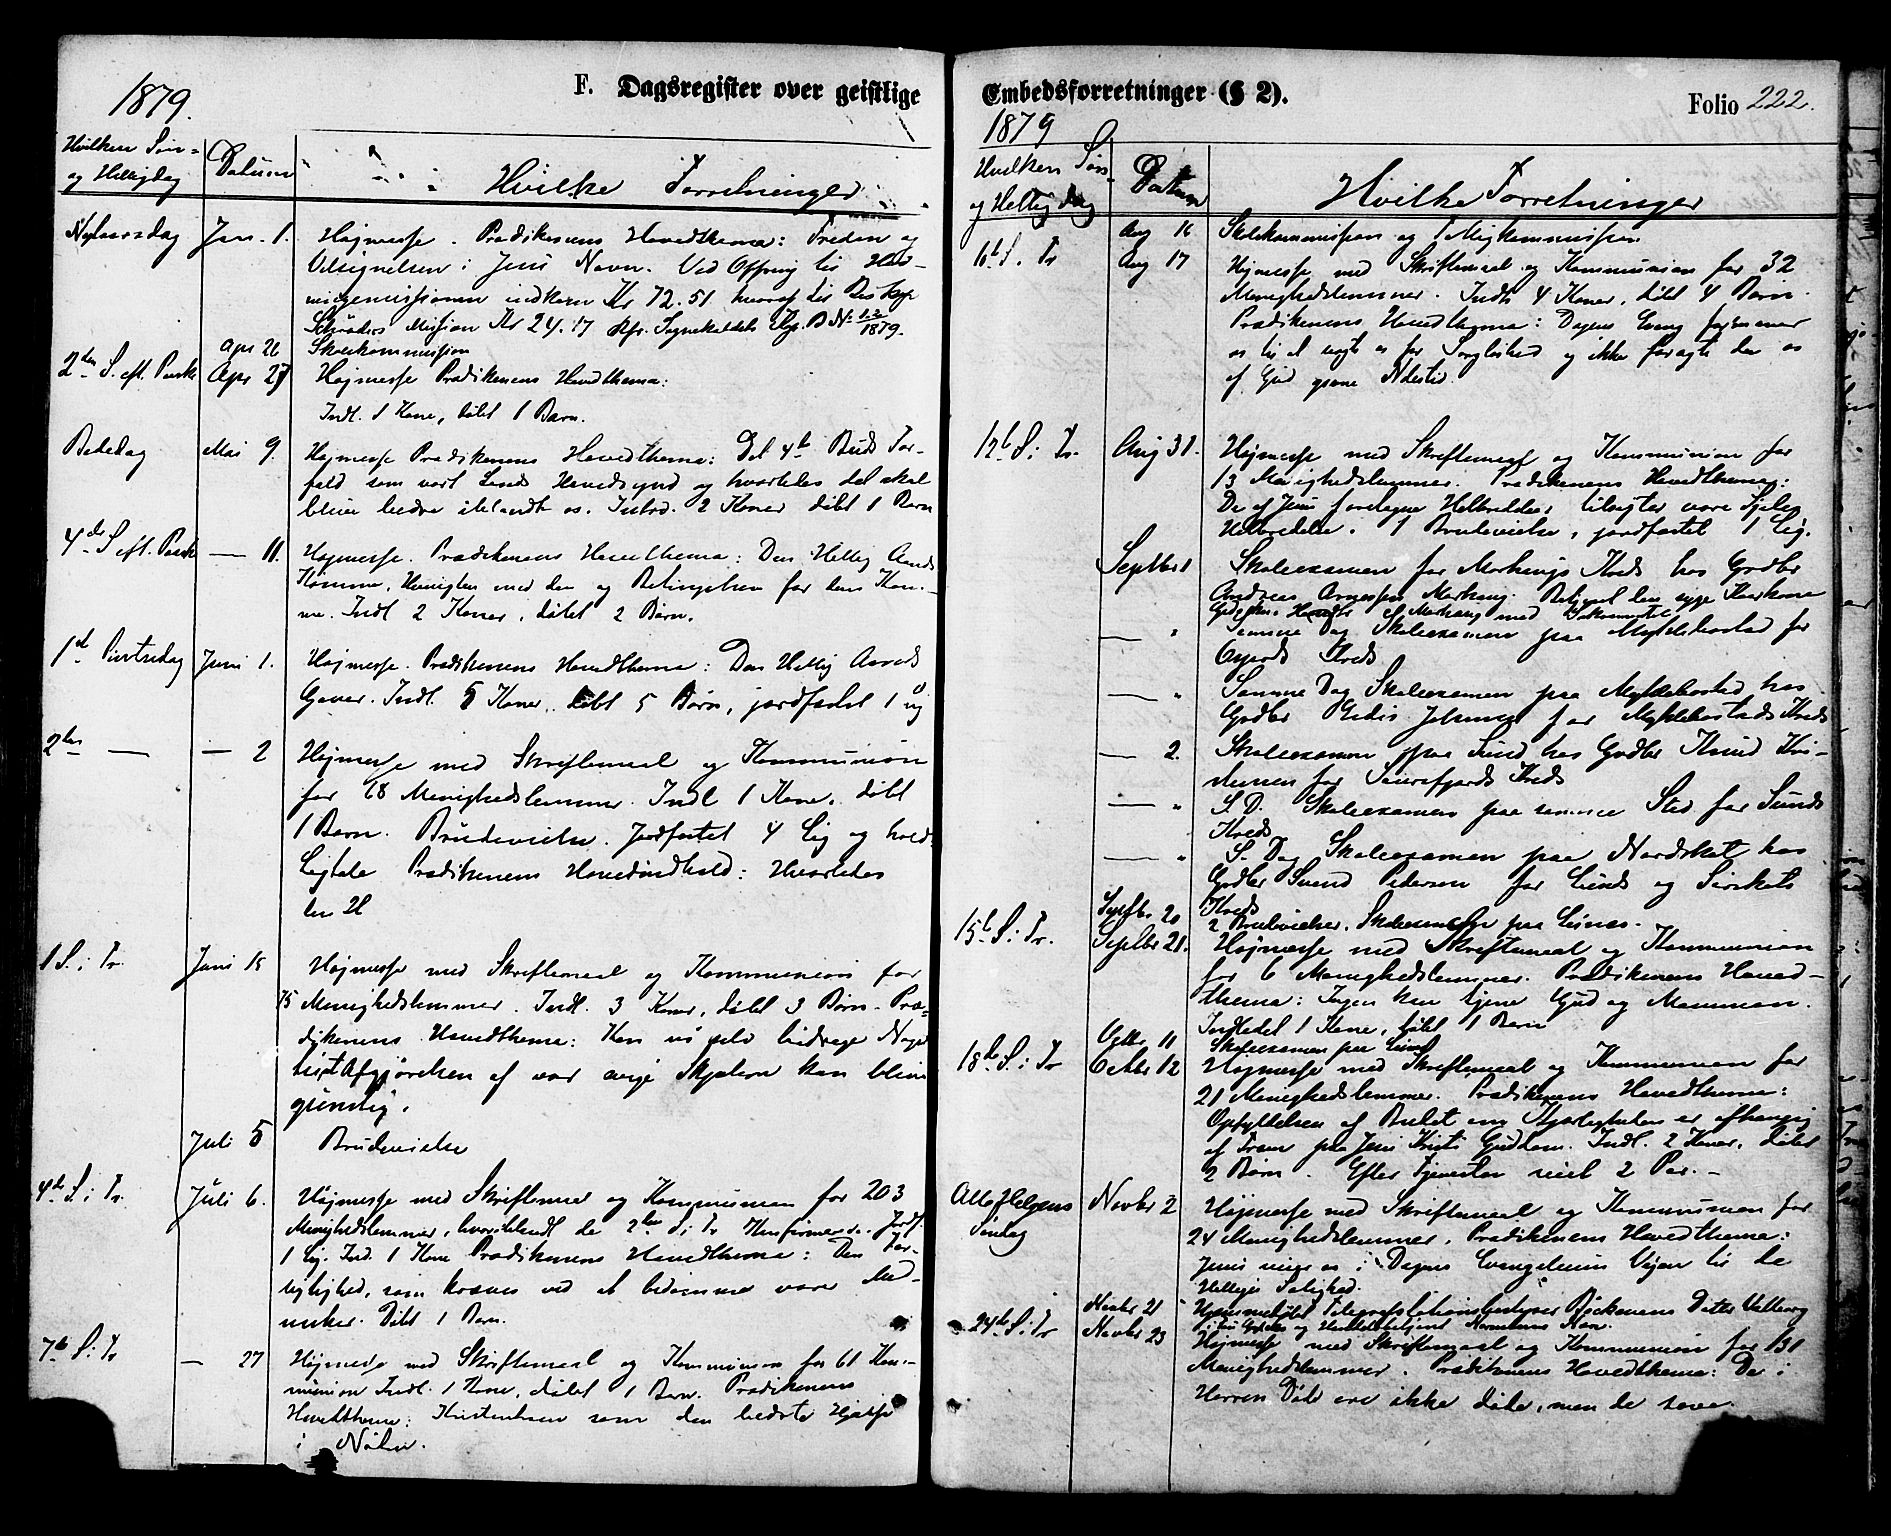 F. Dagsregister over geistlige
1879.
Hvilken Søn-
og Helligdag
Datum
Hvilke Forretninger
Nytaarsdag Jan. 1. Højmesse. Prædikenens Hovedthema: Freden og
Velsignelsen i Jesu Navn. Ved Offring til Hed-
ningemissionen indkom Kr 72.51 hvoraf til Biskop
Schrøders Mission Kr 24.17
1879.
Apr 26 Skolekommission
2den S. eft. Paask Apr 27 Højmesse Prædikenens Hovedthema:
Indl. 1 Kone, døbt 1 Barn.
Bededag Mai 9. Højmesse Prædikenens Hovedthema: Det 4de Buds For-
fald som vort Lands Hovedsynd og hvorledes det skal
blive bedre iblandt os. Introd. 2 Koner døbt 1 Barn
4de S. eft. Paask — 11. Højmesse. Prædikenens Hovedthema: Den Hellig Aands
Komme, Hensigten med den og Betingelsen for dens Kom-
me. Indl 2 Koner, døbt 2 Børn.
1ste Pintsedag Juni 1. Højmesse. Prædikenens Hovedthema: Den Hellig Aands
Gaver. Indl. 5 Koner, døbt 5 Børn, jordfæstet 1 Lig
2den — — 2 Højmesse med Skriftemaal og Kommunion
for 68 Menighedslemmer. Indl 1 Kone, døbt
1 Barn. Brudevielse. Jordfæstet 4 Lig og hold
Ligtale Prædikenens Hovedindhold: Hvorledes
1 S. i Tr. Juni 15 Højmesse med Skriftemaal og Kommunion for
75 Menighedslemmer. Indl. 3 Koner, døbt 3 Børn. Præ-
dikenens Hovedthema: Kan vi selv bidrage Noget
til at Afgjørelsen af vor evige Skjæbne kan blive
gunstig.
Juli 5 Brudevielse
4de S. i Tr. Juli 6. Højmesse med Skriftemaal og Kommunion for 203
Menighedslemmer, hvoriblandt de 2den S. i Tr Konfirmerede. Jordf.
1 Lig. Ind. 1 Kone Prædikenens Hovedthema: Den For-
sigtighed, som kræves ved at bedømme vore Med-
nesker. Døbt 1 Barn.
7de S. i Tr — 27 Højmesse med Skriftemaal og Kommunion for 61 Kom-
munion Indl. 1 Kone, døbt 1 Barn. Prædikenens
Hovedthema: Kristendom som den bedste Hjælp
i Nøden.
Embedsforretninger (§ 2).
Folio 222.
1879
Hvilken Søn-
og Hellig dag
Datum
Hvilke Forretninger
Aug 16 Skolekommission og Fattigkommission
10de S. Tr Aug 17 Højmesse med Skriftemaal og Kommunion for 32
Menighedslemmer. Indl 4 Koner, døbt 4 Børn.
Prædikenens Hovedthema: Dagens Evang
os til at vogte os for Sorgløshed og ikke foragte den os
af Gud givne Naadestid.
12te S. i Tr. Aug 31. Højmesse med Skriftemaal og Kommunion for
13 Menighedslemmer. Prædikenens Hovedthema:
De af Jesu foretagne Helbredelser vore Sjeles
Helbredelse. 1 Brudevielse, jordfæstet 1 Lig.
Septbr 1 Skoleexamen for Morkangs Kreds hos Gaardbr
Andreas Morkang. syge
Morkang med
— „ Samme Dag Skoleexamen paa Myklebostad for
Kreds
— „ Samme Dag Skoleexamen paa Myklebostad hos
Gaardbr Johnsen for Myklebostads Kreds
— 2. Skoleexamen paa Sund hos Gaardbr Knud Kri-
stensen for Kreds
— „ S. D. Skoleexamen paa samme Sted for Sunds
Kreds
— „ S. Dag Skoleexamen paa Nordskot hos
Gaardbr Svend Pedersen for og
Kreds
Septbr 20 2 Brudevielser. Skoleexamen paa
15de S. i Tr. Septbr 21. Højmesse med Skriftemaal og Kommunion
for 6 Menighedslemmer. Prædikenens Hoved-
thema: Ingen kan tjene Gud og Mammon.
Indledet 1 Kone, døbt 1 Barn
Oktbr 11 Skoleexamen paa
18de S. i Tr Octbr 12 Højmesse med Skriftemaal og Kommunion for
21 Menighedslemmer. Prædikenens Hovedthema:
Opfyldelsen af Budet om Kjærligheden er afhængig
af Troen paa Jesu Kristi Guddom. Indl. 2 Koner, døbt
2 Børn. Efter Tjenesten viet 2 Par. —
Alle Helgens Novbr 2 Højmesse med Skriftemaal og Kommunion for
Søndag
24 Menighedslemmer. Prædikenens Hovedthema:
Jesus viser os i Dagens Evangelium Vejen til de
Helliges Salighed.
Novbr 21 Hjemmedøbt Telegrafstationsbestyrer Bøckmans Datter Valborg
24de S. i Tr Novbr 23 Højmesse med Skriftemaal og Kommunion for 131
Menighedslemmer. Prædikenens Hovedthema: De i
Herren Døde ere ikke døde, men de sove.